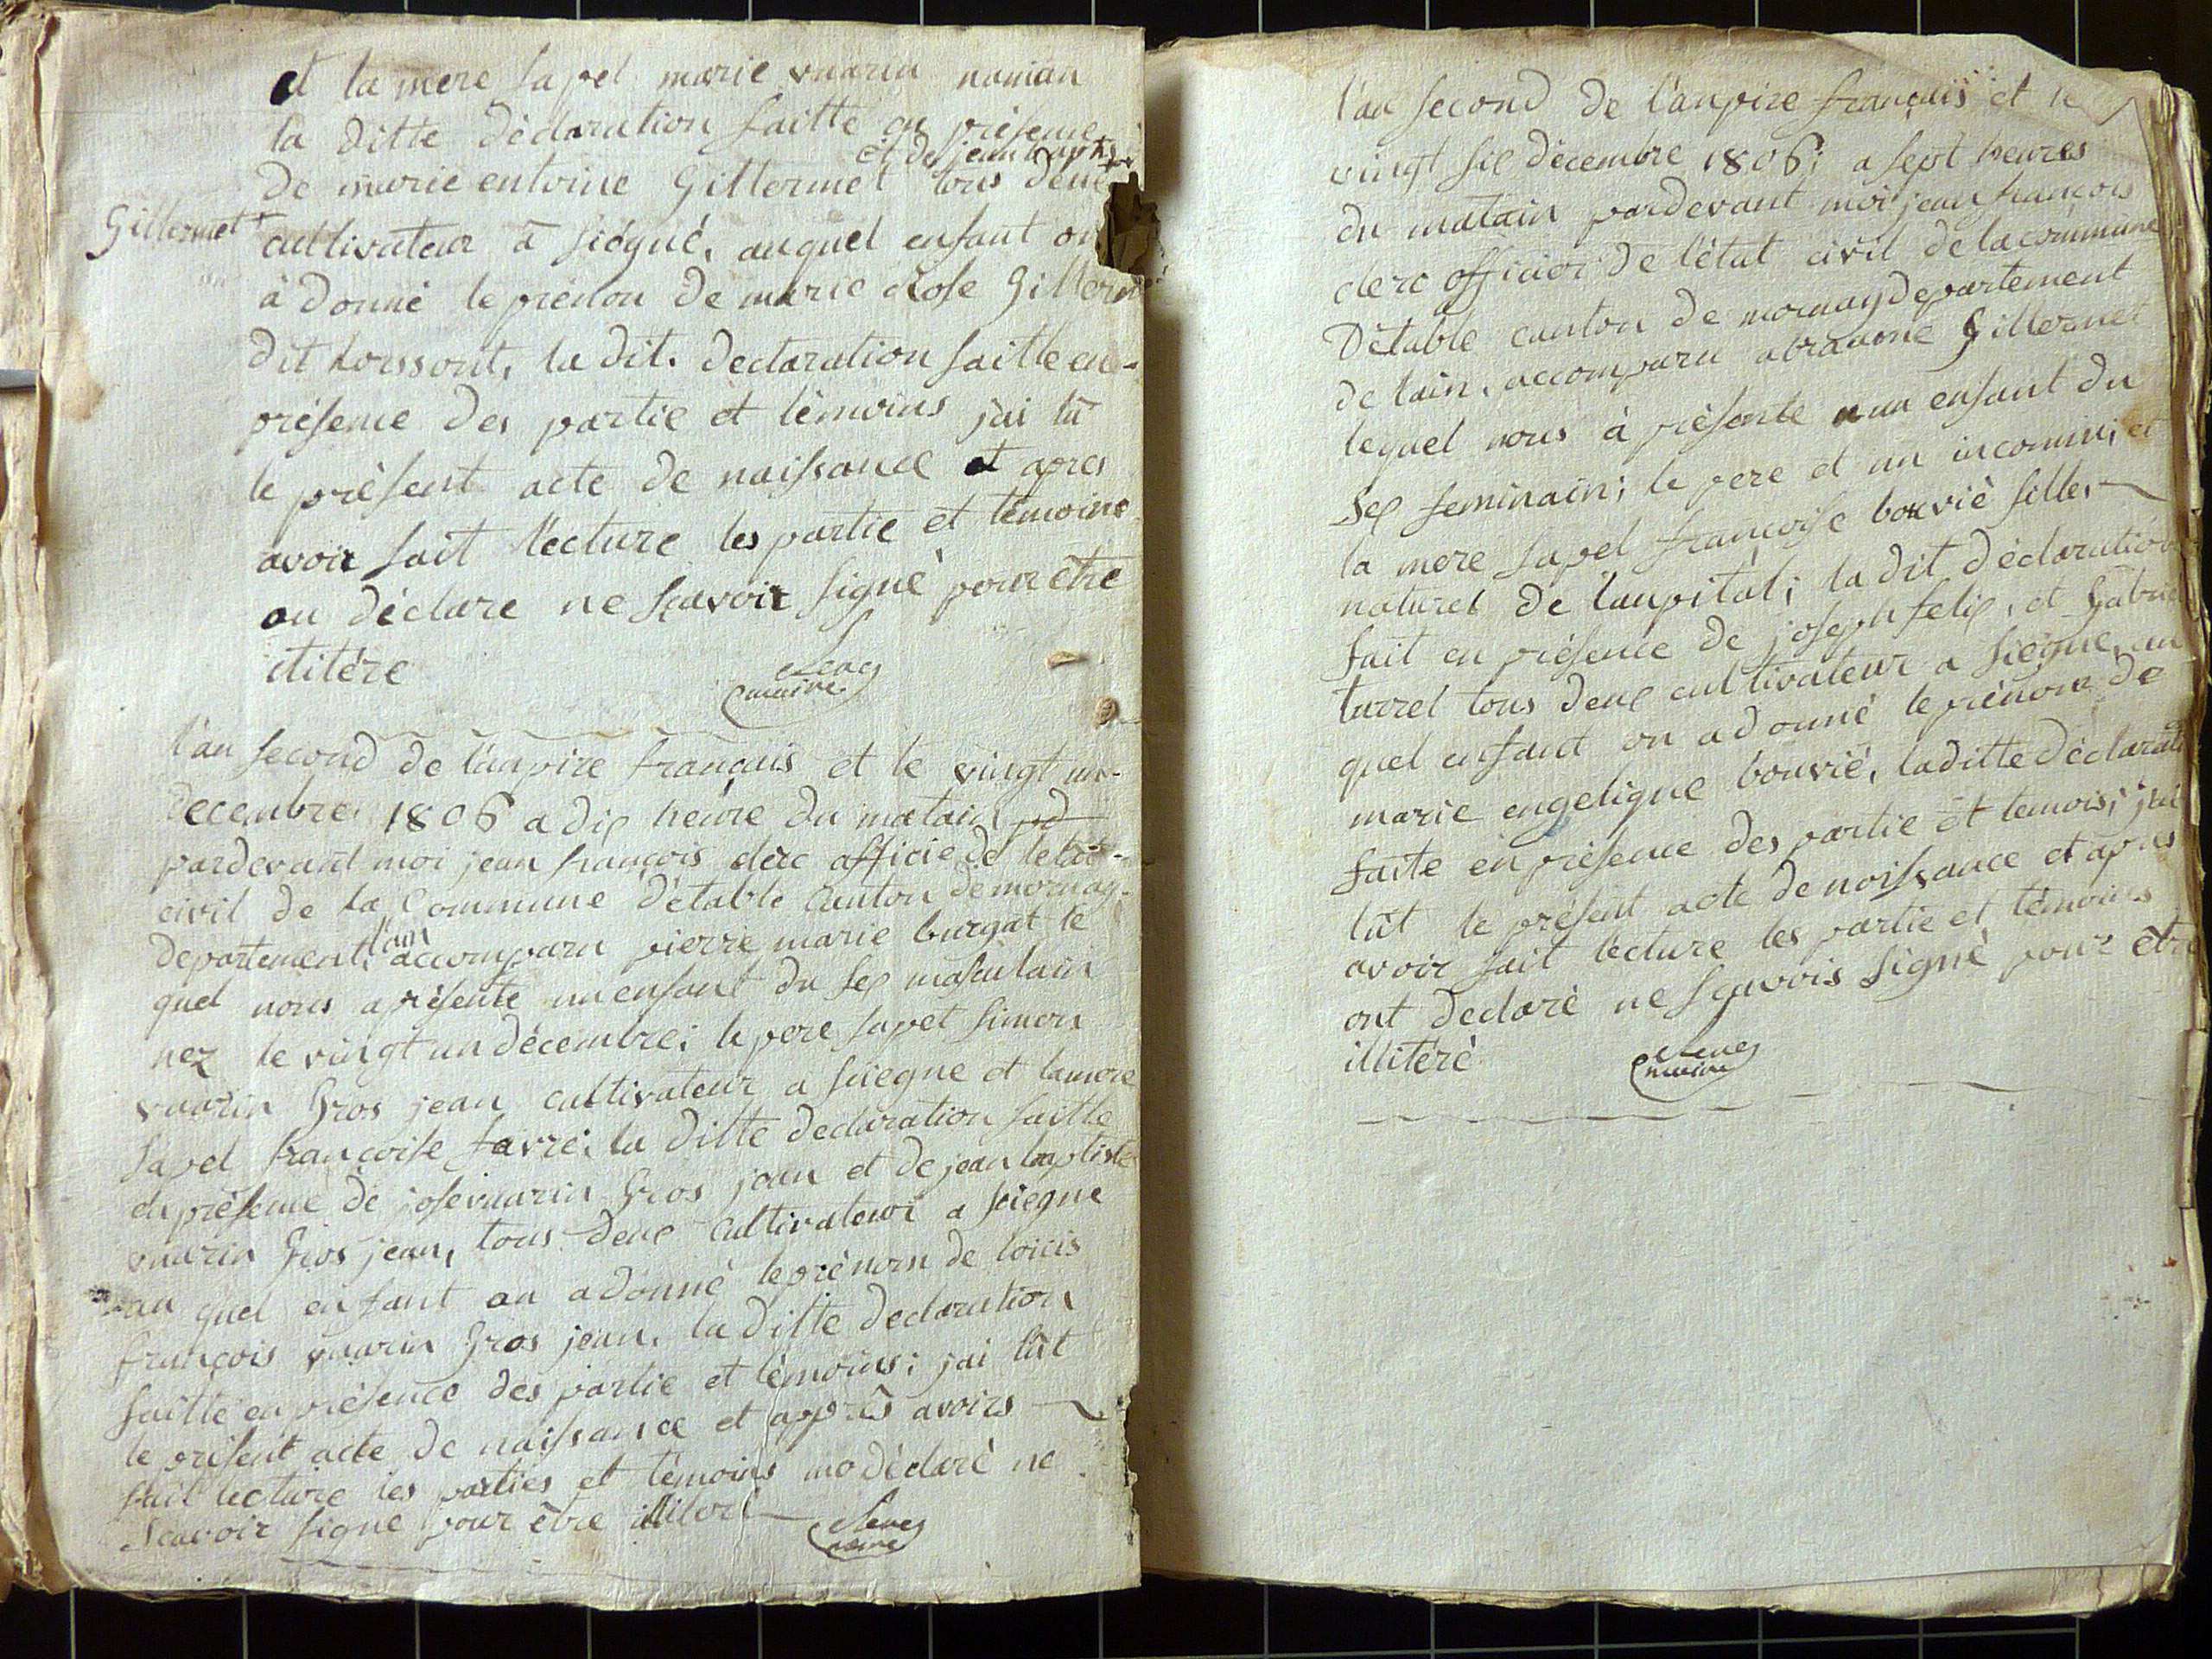 et la mere sapel marie vuarin naman
la ditte déclaration faitte en présence
et de jean bapt
de marie entoine Gillermet tous deux
Gillermet + cultivateur à siégne, auquel enfant on
à donné le prénon de marie Rose Gillerm
dit Loissont, la dit. declaration faitte en-
présence des partie et témoins jai lu
le présent acte de naissance et apres
avoir fait lecture les partie et témoins
on déclare ne scavoir signé pour être
ilitére
Clerc
maire
l'an second de l'anpire français et le vingt un-
decembre 1806 a dix heure du matain
pardevant moi jean françois clerc officie de letat-
civil de la Commune D'étable Canton de mornay-
departement, l'ain accomparu pierre marie burgat le
quel nous a présenté un enfant du sex masculain
nez le vingt un décembre; le pere sapel simon
vuarin Gros jean cultivateur a siegne et lamere
sapel françoise favre; la ditte declaration faitte
en présence de jose vuarin Gros jean et de jean baptiste
vuarin Gros jean, tous deux cultivateur a siegne
au quel enfant on a donné le prénom de loicis
françois vuarin Gros jean. la ditte declaration
faitte en présence des partie et témoins; jai lût
le présent acte de naissance et apprês avoirs
fait lecture les parties et témoins mo déclaré ne
scavoir signe pour être illiteré
Clerc
maire
l'an second de l'anpire français et le
vingt six décembre 1806; a sept heures
du matain pardevant moi jean françois
clerc officier de l'état civil de la commune
Détable canton de mornay departement
de lain, accomparu abraame Gillermet
lequel nous à présente un enfant du
sex feminain; le pere et un inconnu; et
la mere sapel françoise bouvié fille
naturel de l'aupital; la dit déclaration
fait en présence de joseph felix, et Gabriel
turrel tous deux cultivateur a siegne, au
quel enfant on a donné le prénom de
marie engelique bouvié, laditte déclarati
faite en présence des partie et temois; jai
lût le présent acte de noissance et après
avoir fait lecture les partie et témoins
ont declaré ne scavois signé pour être
illitéré
Clerc
maire